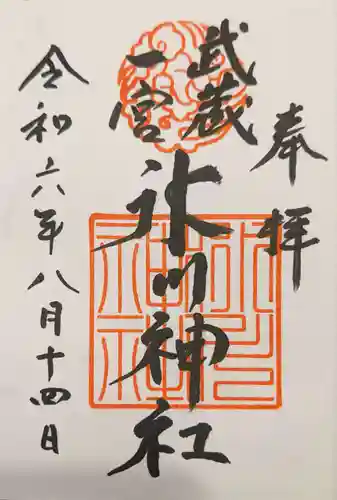 奉拝
武蔵
一宮
氷川神社
令和六年八月十四日
氷川
神社